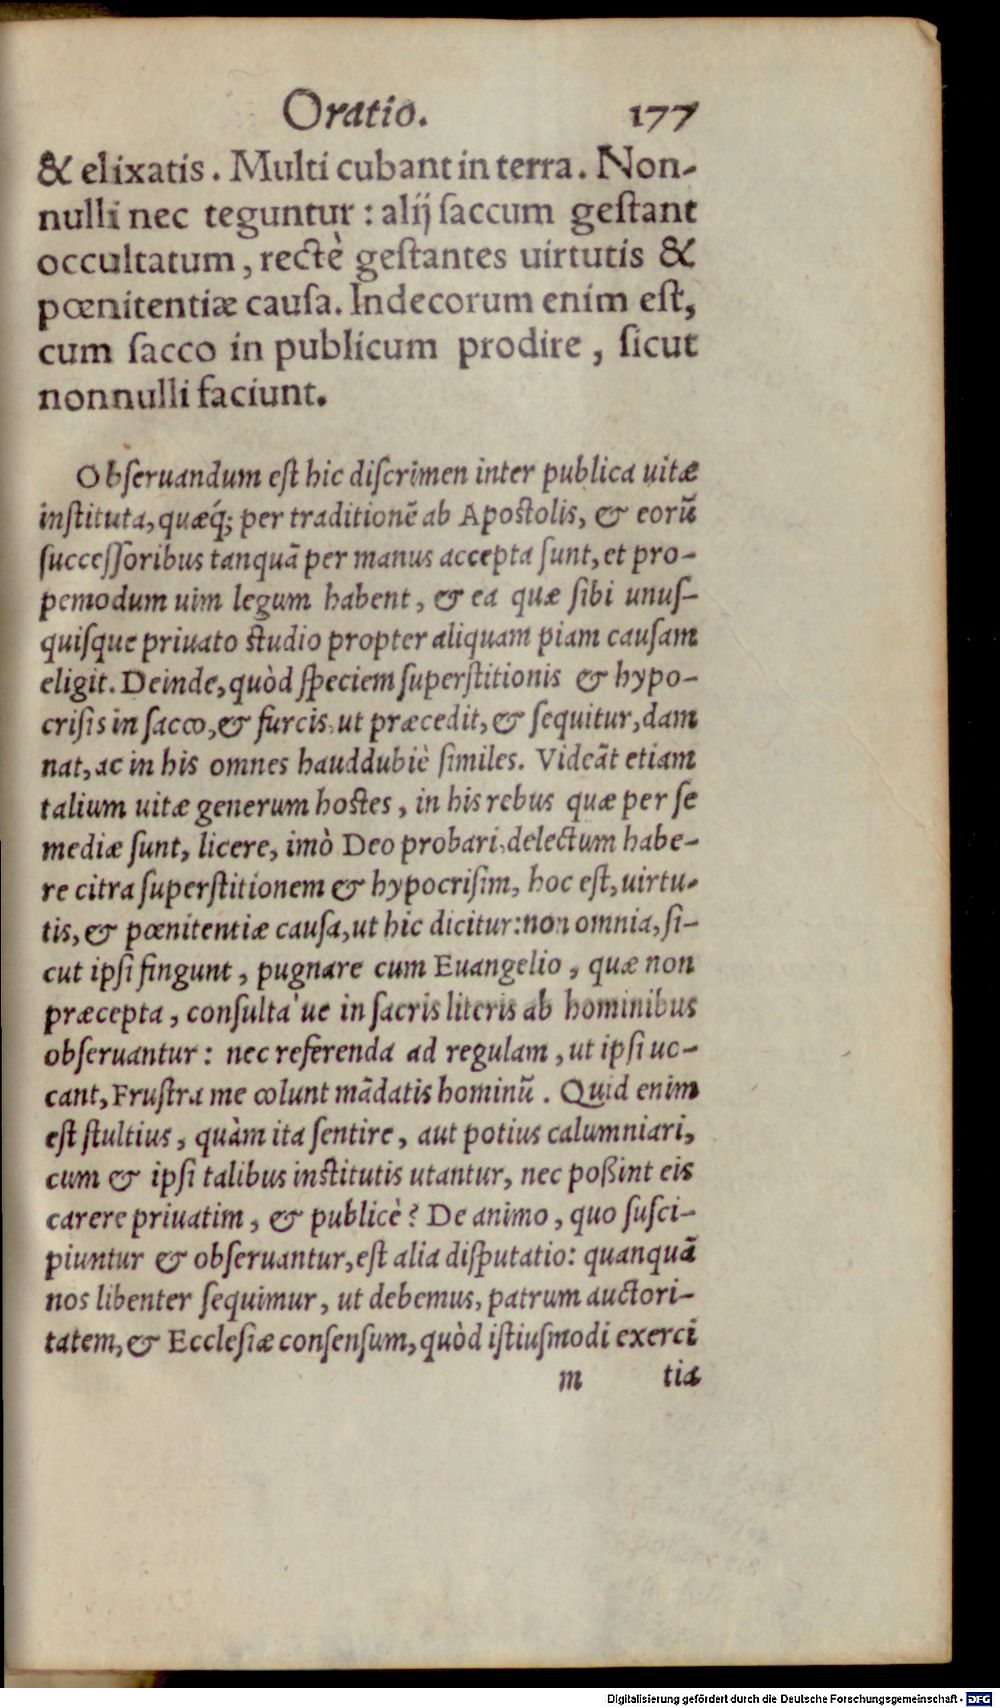 Oratio. 177
& elixatis. Multi cubant in terra. Non-
nulli nec teguntur: alij saccum gestant
occultatum, rectè gestantes uirtutis &
pœnitentiæ causa. Indecorum enim est,
cum sacco in publicum prodire, sicut
nonnulli faciunt.
Obseruandum est hic discrimen inter publica uitæ
instituta, quæq́; per traditionẽ ab Apostolis, & eorũ
successoribus tanquã per manus accepta sunt, et pro-
pemodum uim legum habent, & ea quæ sibi unus-
quisque priuato studio propter aliquam piam causam
eligit. Deinde, quòd speciem superstitionis & hypo-
crisis in sacco, & furcis, ut præcedit, & sequitur, dam
nat, ac in his omnes hauddubiè similes. Videãt etiam
talium uitæ generum hostes, in his rebus quæ per se
mediæ sunt, licere, imò Deo probari, delectum habe-
re citra superstitionem & hypocrisim, hoc est, uirtu-
tis, & pœnitentiæ causa, ut hic dicitur: non omnia, si-
cut ipsi fingunt, pugnare cum Euangelio, quæ non
præcepta, consulta'ue in sacris literis ab hominibus
obseruantur: nec referenda ad regulam, ut ipsi uo-
cant, Frustra me colunt mãdatis hominũ. Quid enim
est stultius, quàm ita sentire, aut potius calumniari,
cum & ipsi talibus institutis utantur, nec poßint eis
carere priuatim, & publicè? De animo, quo susci-
piuntur & obseruantur, est alia disputatio: quanquã
nos libenter sequimur, ut debemus, patrum auctori-
tatem, & Ecclesiæ consensum, quòd istiusmodi exerci
m tia
Digitalisierung gefördert durch die Deutsche Forschungsgemeinschaft - DFG